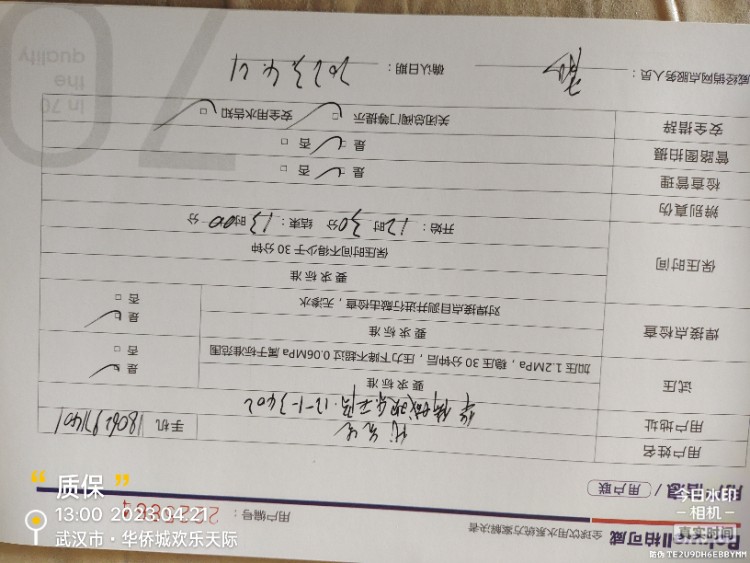 全球饮用水系统方案解决者
用户信息 / 用户联
用户编号：
用户姓名
用户地址 华侨城欢乐天际 12-1-3402 手机
试压 要求标准
加压1.2MPa，稳压30分钟后，压力下降不超过0.06MPa属于标准范围
是
否
焊接点检查 要求标准
对焊接点目测并进行敲击检查，无渗水
是
否
保压时间 要求标准
保压时间不得少于30分钟
开始：12时30分 结束：13时00分
辨别真伪
检查管理 是 否
管路图拍摄 是 否
安全措辞 关闭总阀门等提示 安全用水告知
威经销网点服务人员： 确认日期：2023.4.21
in 70
the
quality
70
“质保”
13:00 2023.04.21
武汉市·华侨城欢乐天际
今日水印
相机
真实时间
防伪 TE2U9DH6EBBYMM